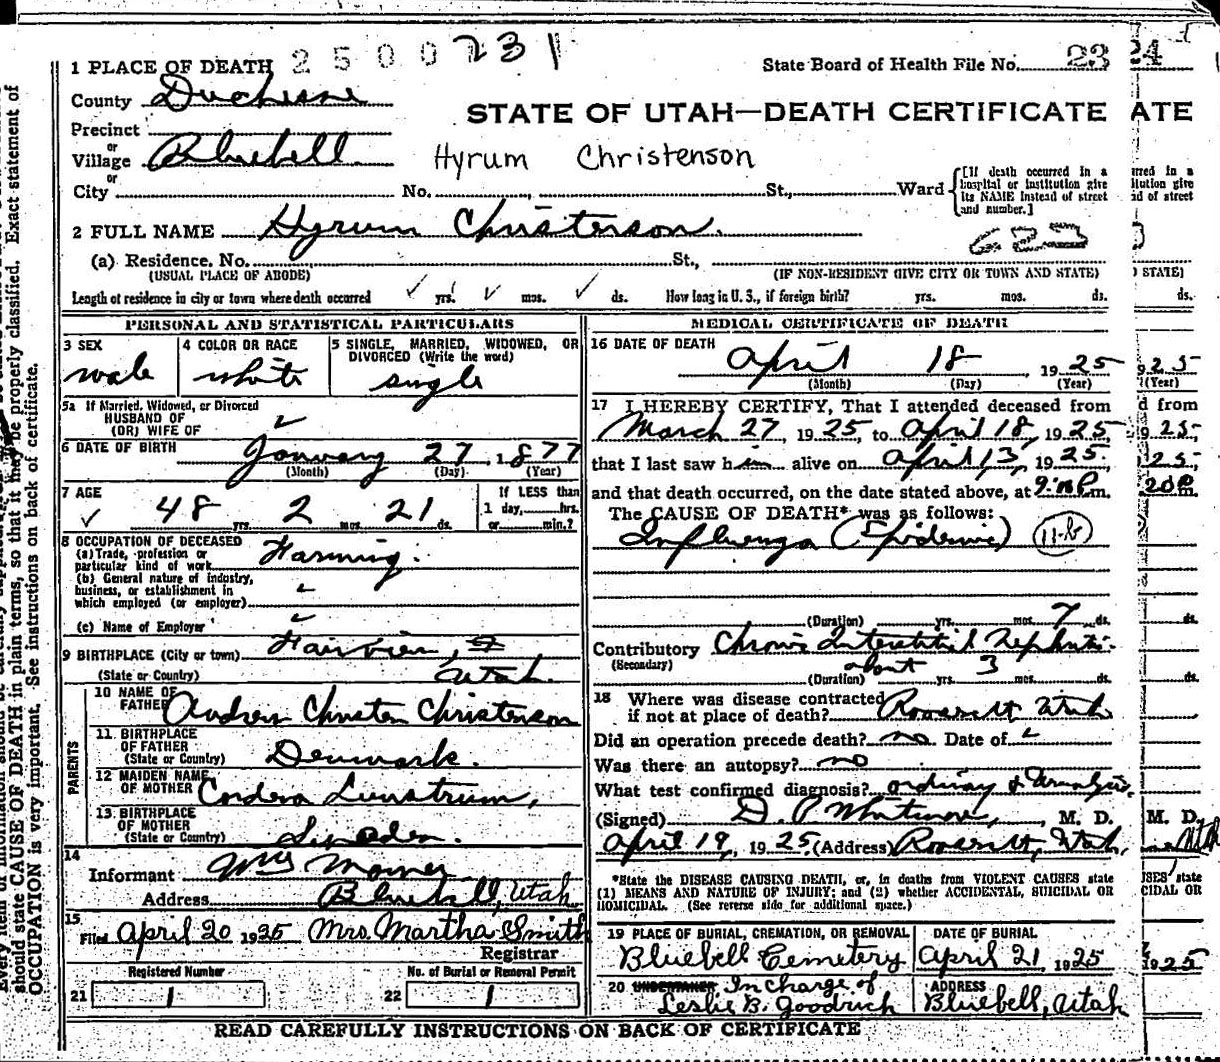 1 PLACE OF DEATH 2500231
State Board of Health File No. 23 24
County Duchesne
STATE OF UTAH—DEATH CERTIFICATE ATE
Precinct
or
Village Bluebell
Hyrum Christenson
or
City No. St., Ward
[If death occurred in a hospital or institution give its NAME instead of street and number.]
2 FULL NAME Hyrum Christenson.
623
(a) Residence. No. St.,
(USUAL PLACE OF ABODE) (IF NON-RESIDENT GIVE CITY OR TOWN AND STATE)
Length of residence in city or town where death occurred yrs. mos. ds. How long in U. S., if foreign birth? yrs. mos. ds.
PERSONAL AND STATISTICAL PARTICULARS
3 SEX
male
4 COLOR OR RACE
white
5 SINGLE, MARRIED, WIDOWED, OR
DIVORCED (Write the word)
single
5a If Married, Widowed, or Divorced
HUSBAND OF
(OR) WIFE OF
6 DATE OF BIRTH January 27, 1877
(Month) (Day) (Year)
7 AGE
48 yrs. 2 mos. 21 ds.
If LESS than
1 day, hrs.
or min.?
8 OCCUPATION OF DECEASED
(a) Trade, profession or
particular kind of work Farming.
(b) General nature of industry,
business, or establishment in
which employed (or employer)
(c) Name of Employer
9 BIRTHPLACE (City or town) Fairview,
(State or Country) Utah.
PARENTS
10 NAME OF
FATHER Andrew Christen Christenson
11 BIRTHPLACE
OF FATHER
(State or Country) Denmark.
12 MAIDEN NAME
OF MOTHER Cordera Lunstrum,
13 BIRTHPLACE
OF MOTHER
(State or Country) Sweden.
14
Informant Wm
Address Bluebell, Utah
15
Filed April 20 1925 Mrs. Martha Smith
Registrar
Registered Number
21 1
No. of Burial or Removal Permit
22 1
MEDICAL CERTIFICATE OF DEATH
16 DATE OF DEATH
April 18, 1925
(Month) (Day) (Year)
17 I HEREBY CERTIFY, That I attended deceased from
March 27, 1925, to April 18, 1925,
that I last saw him alive on April 13, 1925.
and that death occurred, on the date stated above, at P.m.
The CAUSE OF DEATH* was as follows:
Influenza (Epidemic) 11-b
(Duration) yrs. mos. 7 ds.
Contributory Chronic Interstitial Nephritis.
(Secondary) about 3
(Duration) yrs. mos. ds.
18 Where was disease contracted
if not at place of death? Roosevelt Utah
Did an operation precede death? no. Date of
Was there an autopsy? no
What test confirmed diagnosis? ordinary & Urinalysis.
(Signed) D. P. Whitmore, M. D.
April 19, 1925. (Address) Roosevelt, Utah.
*State the DISEASE CAUSING DEATH, or, in deaths from VIOLENT CAUSES state
(1) MEANS AND NATURE OF INJURY; and (2) whether ACCIDENTAL, SUICIDAL OR
HOMICIDAL. (See reverse side for additional space.)
19 PLACE OF BURIAL, CREMATION, OR REMOVAL
Bluebell Cemetery
DATE OF BURIAL
April 21, 1925
20 UNDERTAKER In charge of
Leslie B. Goodrich
ADDRESS
Bluebell, Utah
READ CAREFULLY INSTRUCTIONS ON BACK OF CERTIFICATE
should state CAUSE OF DEATH in plain terms, so that it may be properly classified. Exact statement of
OCCUPATION is very important. See instructions on back of certificate.